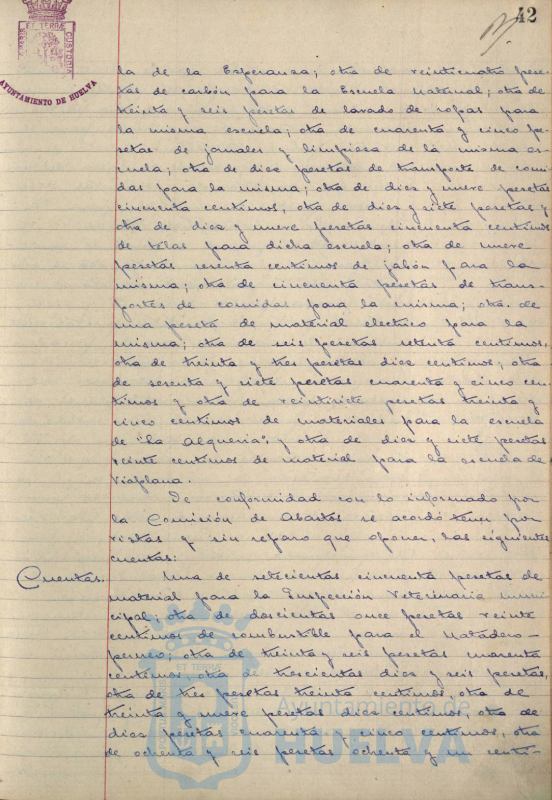 42
ET TERRÆ CUSTODIA
AYUNTAMIENTO DE HUELVA
la de la Esperanza; otra de veinticuatro pese-
tas de carbón para la Escuela Maternal; otra de
treinta y seis pesetas de lavado de ropas para
la misma escuela; otra de cuarenta y cinco pe-
setas de jornales y limpieza de la misma es-
cuela; otra de diez pesetas de transporte de comi-
das para la misma; otra de diez y nueve pesetas
cincuenta centimos, otra de diez y siete pesetas y
otra de diez y nueve pesetas cincuenta centimos
de telas para dicha escuela; otra de nueve
pesetas sesenta centimos de jabón para la
misma; otra de cincuenta pesetas de trans-
portes de comidas para la misma; otra de
una peseta de material electrico para la
misma; otra de seis pesetas setenta centimos,
otra de treinta y tres pesetas diez centimos; otra
de sesenta y siete pesetas cuarenta y cinco cen-
timos y otra de veintisiete pesetas treinta y
cinco centimos de materiales para la escuela
de "la Alqueria" y otra de diez y siete pesetas
veinte centimos de material para la escuela de
Viaplana.
De conformidad con lo informado por
la Comisión de Abastos se acordó tener por
vistas y sin reparo que oponer, las siguientes
cuentas:
Cuentas. Una de setecientas cincuenta pesetas de
material para la Inspección Veterinaria muni-
cipal; otra de doscientas once pesetas veinte
centimos de combustible para el Matadero-
perreo; otra de treinta y seis pesetas cuarenta
centimos otra de trescientas diez y seis pesetas,
otra de tres pesetas treinta centimos, otra de
treinta y nueve pesetas diez centimos, otra de
diez pesetas cuarenta y cinco centimos, otra
de ochenta y seis pesetas ochenta y un centi-
ET TERRÆ
Ayuntamiento de
HUELVA